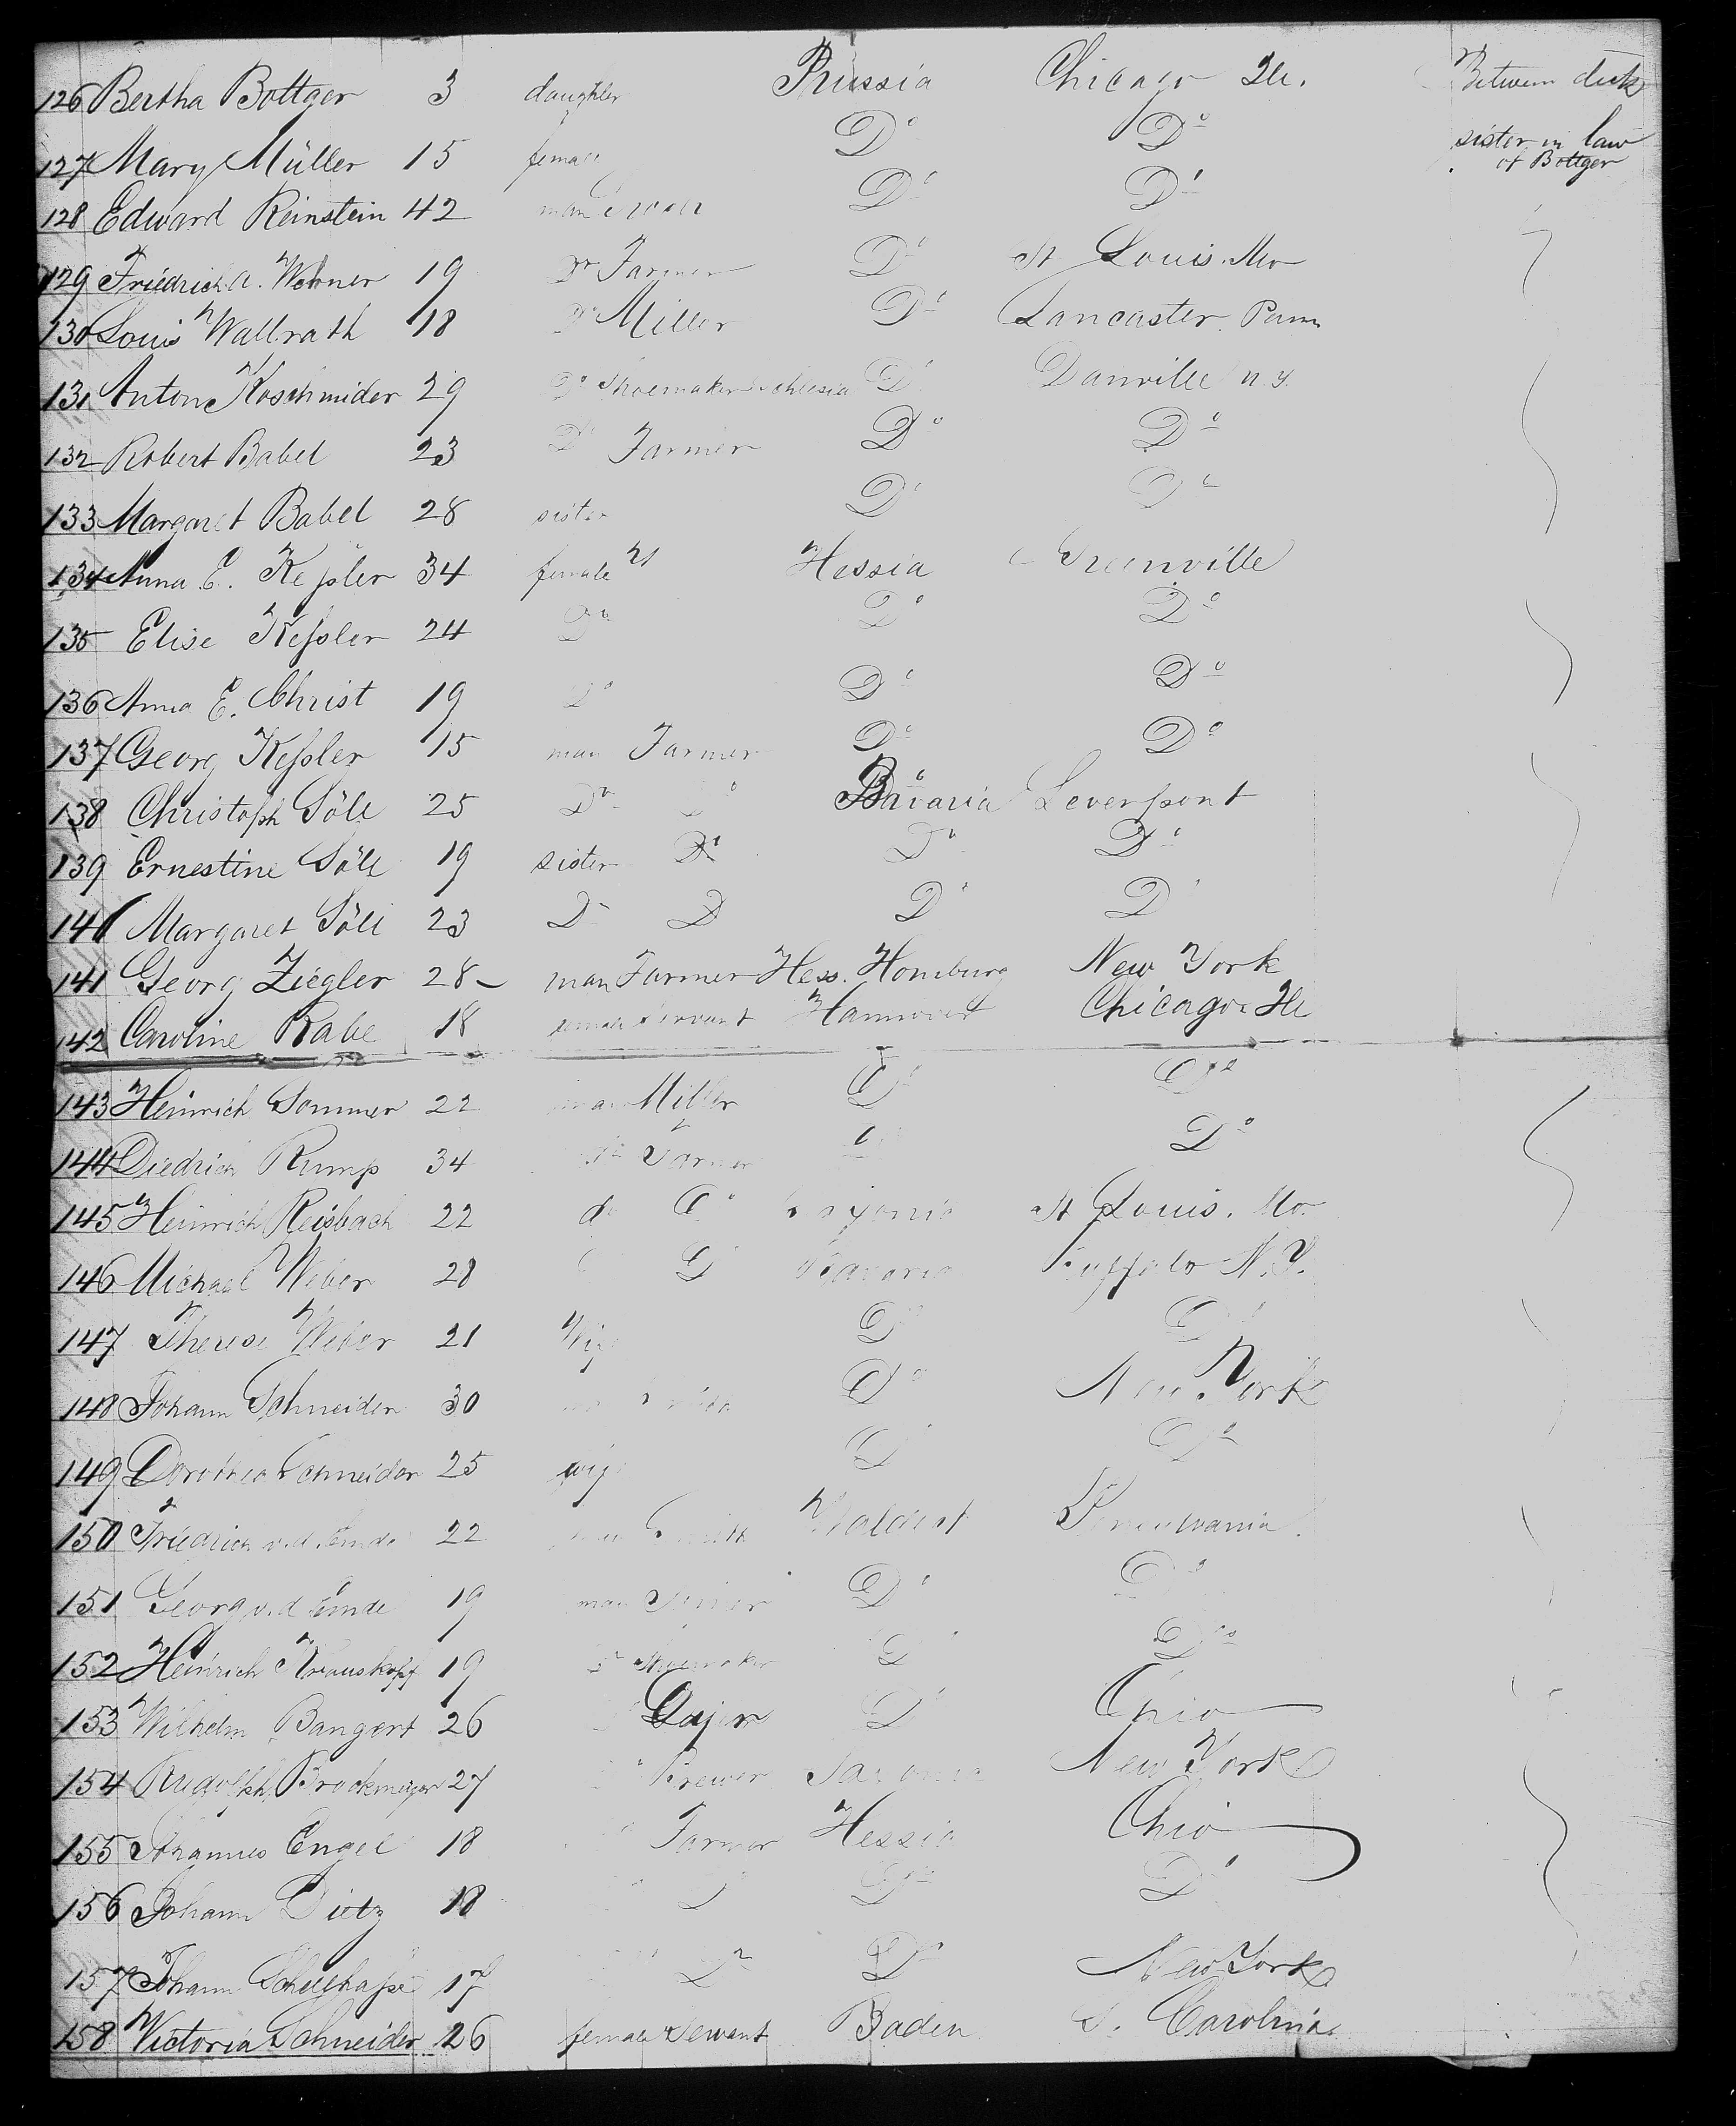 126 Bertha Bottger 3 daughter Prussia Chicago Ill. Between deck
127 Mary Müller 15 female Do Do sister in law of Bottger
128 Edward Reinstein 42 man Do Do
129 Friedrich A. Wehner 19 Do Farmer Do St Louis. Mo
130 Louis Wallrath 18 Do Miller Do Lancaster Penn
131 Anton Koschmider 29 Do Shoemaker Schlesia Do Danville N.Y.
132 Robert Babel 23 Do Farmer Do Do
133 Margaret Babel 28 sister Do Do
134 Anna E. Keſsler 34 female Hessia Greenville
135 Elise Keſsler 24 Do Do Do
136 Anna E. Christ 19 Do Do Do
137 Georg Keſsler 15 man Farmer Do Do
138 Christoph Söll 25 Do Do Bavaria
139 Ernestine Söll 19 sister Do Do Do
140 Margaret Söll 23 Do D Do Do
141 Georg Ziegler 28 man Farmer Hess. Homburg New York
142 Caroline Rabe 18 female Servant Hannover Chicago Ill
143 Heinrich Sommer 22 man Miller Do Do
144 Diedrich Rump 34 Do Farmer Do Do
145 Heinrich Reisbach 22 do Do Saxonia St Louis. Mo.
146 Michael Weber 28 Do Bavaria Buffalo N.Y.
147 Therese Weber 21 Wife Do Do
148 Johann Schneider 30 Do New York
149 Dorothea Schneider 25 wife Do Do
150 Friedrich v.d. Emde 22 man Smith Waldeck Pennsylvania
151 Georg v.d. Emde 19 man Do Do
152 Heinrich Krauskopf 19 Do Shoemaker Do Do
153 Wilhelm Bangert 26 Do Ohio
154 Rudolph Brockmeyer 27 Brewer Saxonia New York
155 Johannes Engel 18 Farmer Hessia Ohio
156 Johann Dietz 18 Do Do Do
157 Johann 17 Do Do New York
158 Victoria Schneider 26 female Servant Baden S. Carolina